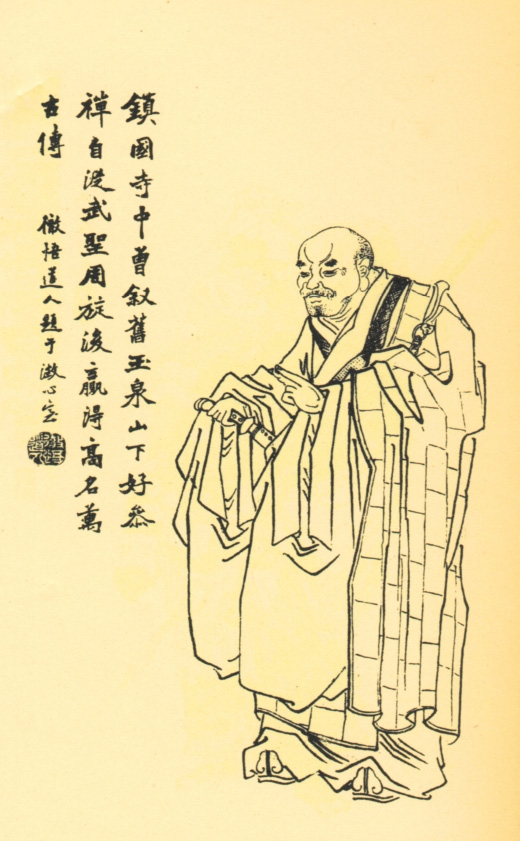 鎮國寺中曾叙舊玉泉山下好叅
禪自從武聖周旋後贏得高名萬
古傳
徹悟道人題于漱心室